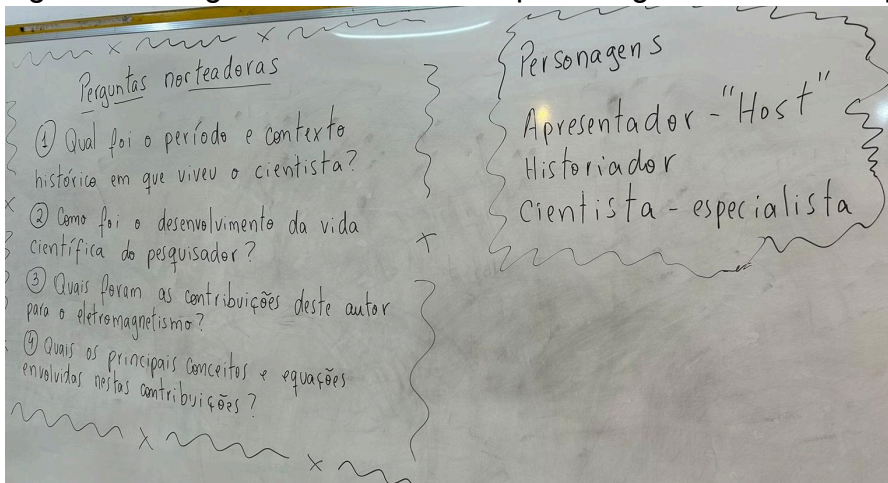 Perguntas norteadoras
① Qual foi o período e contexto
histórico em que viveu o cientista?
② Como foi o desenvolvimento da vida
científica do pesquisador?
③ Quais foram as contribuições deste autor
para o eletromagnetismo?
④ Quais os principais conceitos e equações
envolvidas nestas contribuições?
Personagens
Apresentador - "Host"
Historiador
Cientista - especialista